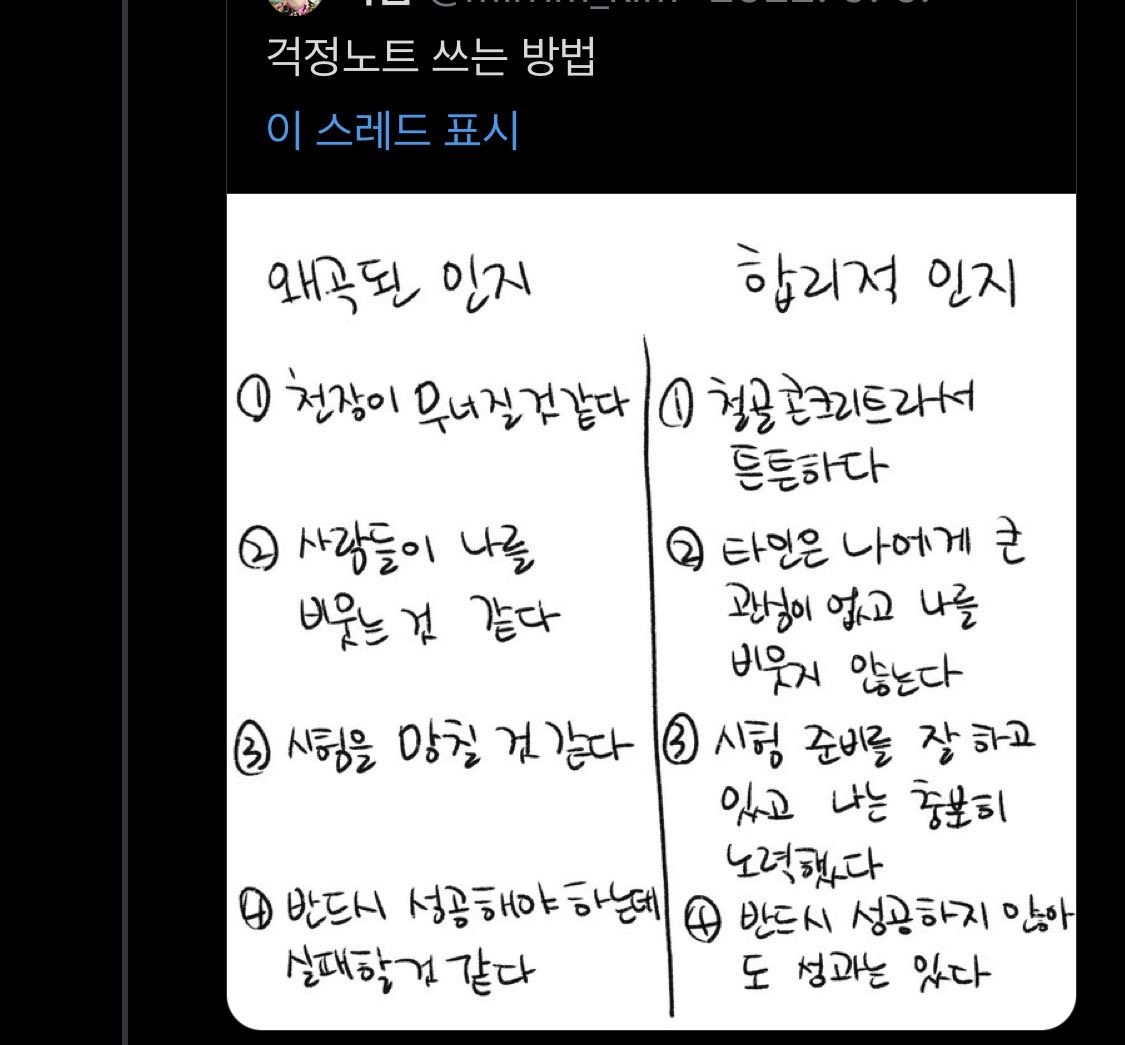 걱정노트 쓰는 방법
이 스레드 표시
왜곡된 인지
① 천장이 무너질것같다
② 사람들이 나를
비웃는 것 같다
③ 시험을 망칠 것 같다
④ 반드시 성공해야 하는데
실패할것 같다
합리적 인지
① 철골콘크리트라서
튼튼하다
② 타인은 나에게 큰
관심이 없고 나를
비웃지 않는다
③ 시험 준비를 잘 하고
있고 나는 충분히
노력했다
④ 반드시 성공하지 않아
도 성과는 있다